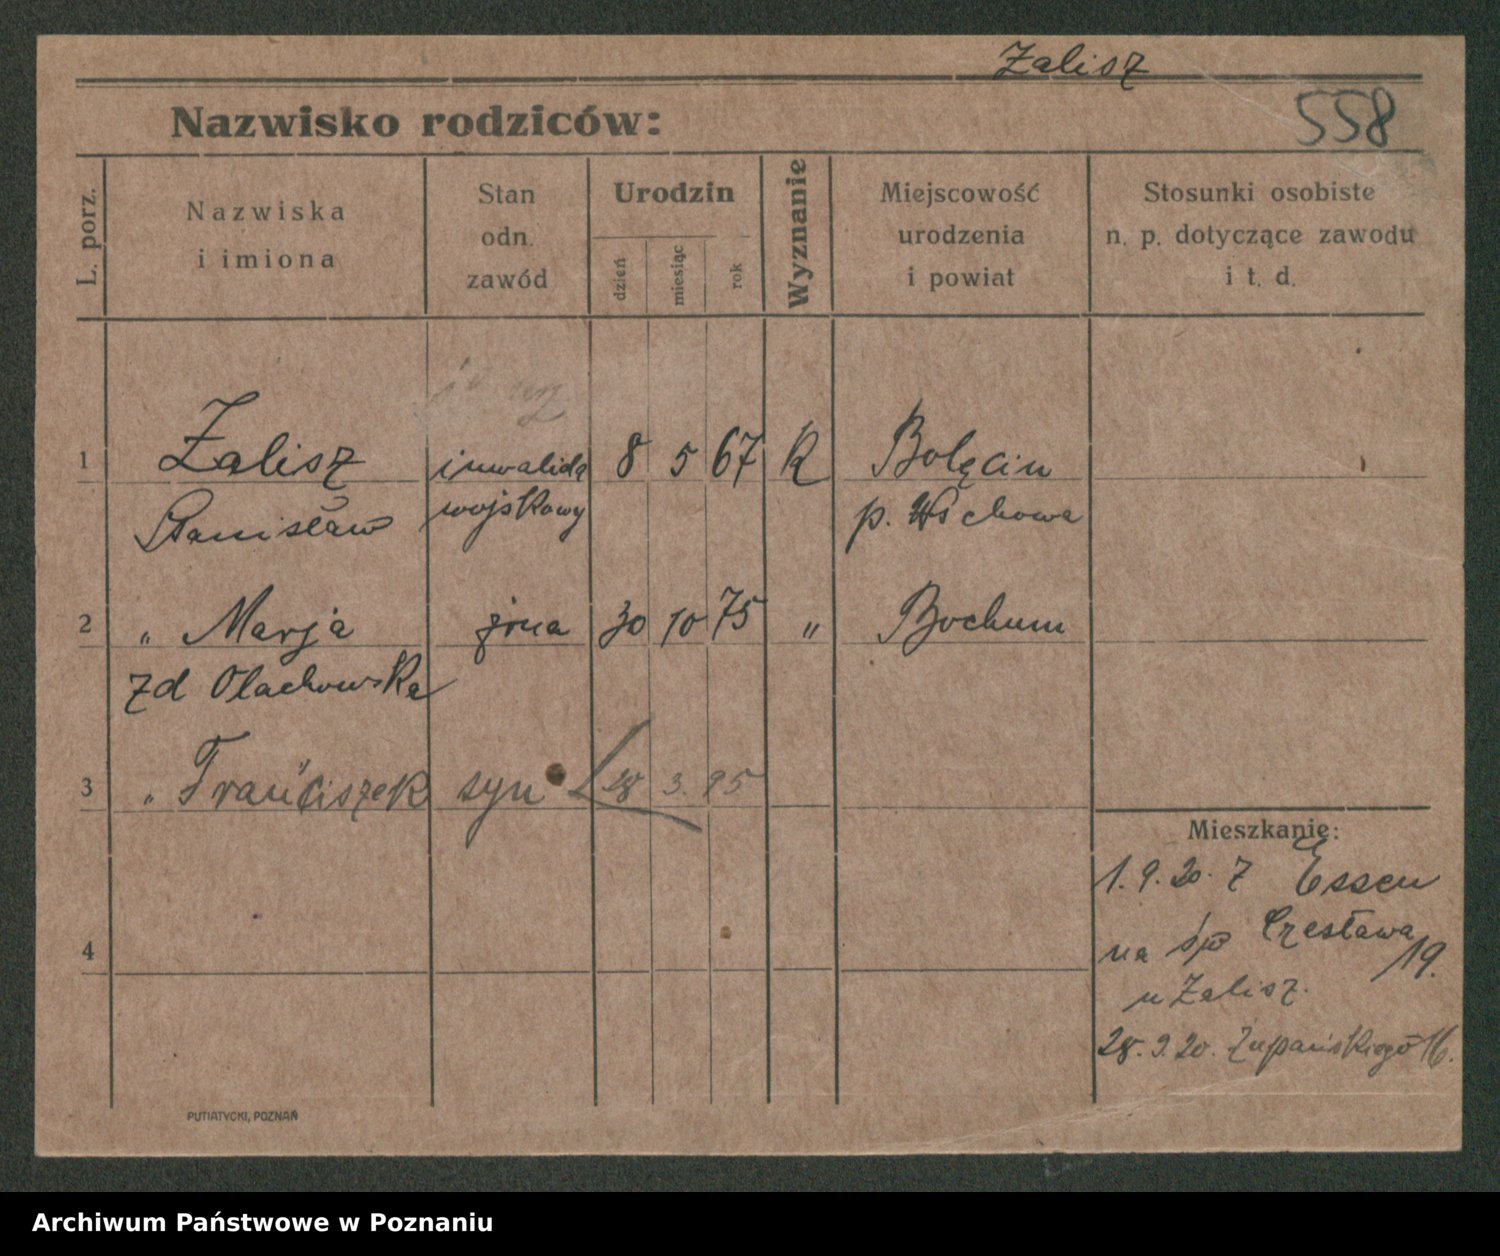 Zalisz
Nazwisko rodziców:
558
L. porz.
Nazwiska
i imiona
Stan
odn.
zawód
Urodzin
dzień
miesiąc
rok
Wyznanie
Miejscowość
urodzenia
i powiat
Stosunki osobiste
n. p. dotyczące zawodu
i t. d.
1 Zalisz inwalida 8 5 67 K Bolęcin
Stanisław wojskowy p. Wschowa
2 „ Marja żona 30 10 75 „ Bochum
zd Olachowska
3 „ Franciszek syn 28 3. 95
Mieszkanie:
1.9.20. z Essen
na śp Czesława 19.
u Zalisz.
4
28.9.20. Żupańskiego 16.
PUTIATYCKI, POZNAŃ
Archiwum Państwowe w Poznaniu